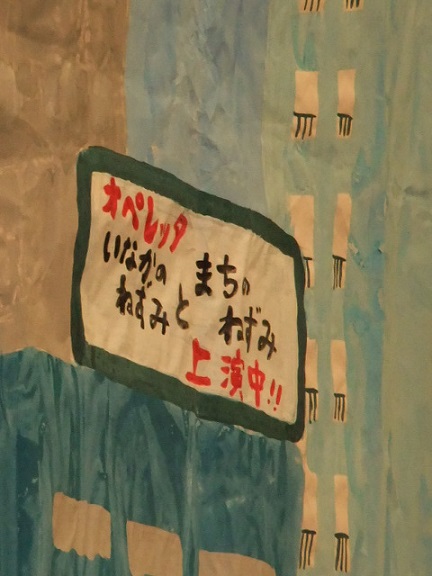 オペレッタ
いなかの
ねずみと
まちの
ねずみ
上演中!!